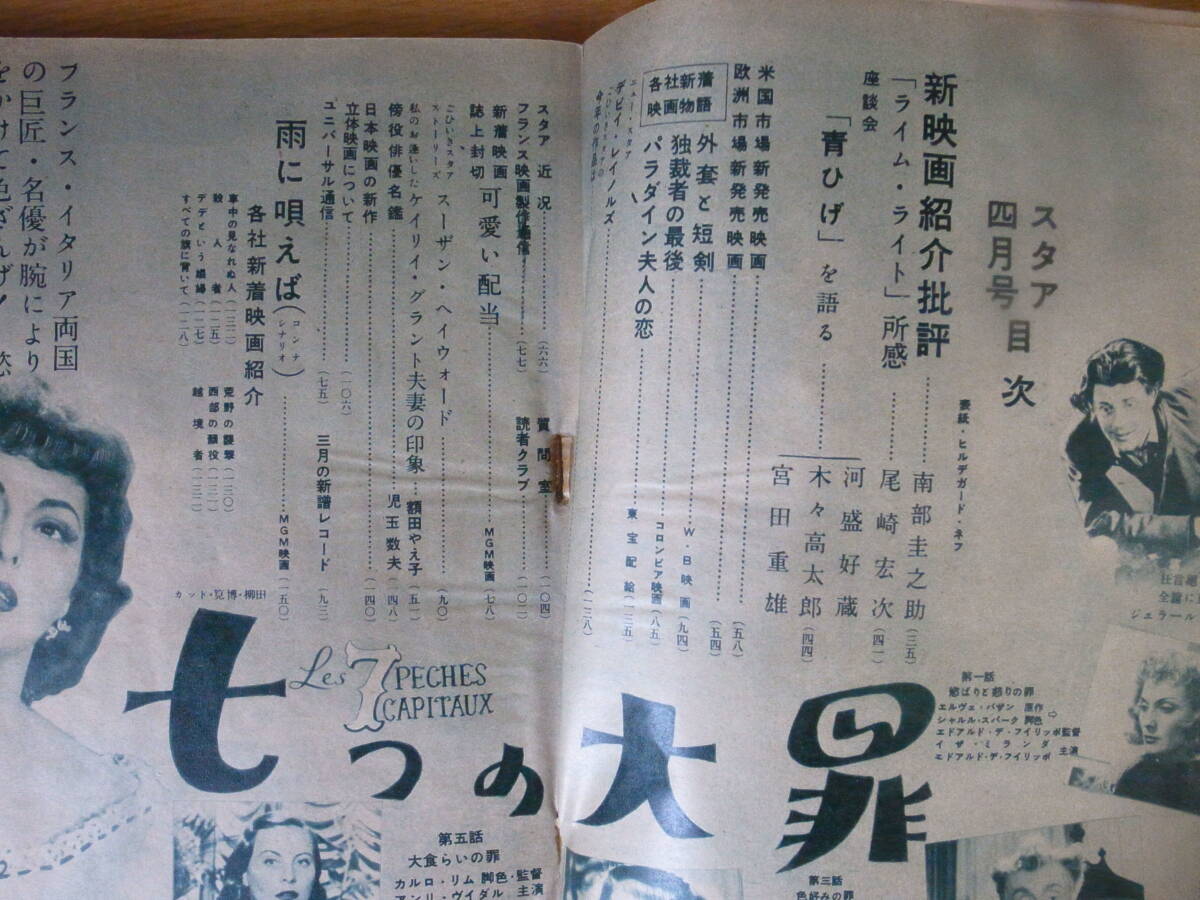 スタア
四月号 目次
表紙・ヒルデガード・ネフ
新映画紹介批評……南部圭之助(三五)
「ライム・ライト」所感……尾崎宏次(四一)
座談会
「青ひげ」を語る……
河盛好蔵
木々高太郎(四四)
宮田重雄
米国市場新発売映画……(五八)
欧洲市場新発売映画……(五四)
各社新着
映画物語
外套と短剣……W・B映画(九四)
独裁者の最後……コロンビア映画(八五)
パラダイン夫人の恋……東宝配給(一三五)
ニュー・スタア
デビイ・レイノルズ
今年の作品は……(一三八)
スタア近況……(六六)
質問室……(一〇四)
フランス映画製作通信……(七七)
読者クラブ……(一〇二)
新着映画
誌上封切
可愛い配当……MGM映画(七八)
ごひいきスタア
ストーリーズ
スーザン・ヘイウォード……(九〇)
私のお逢いした
ケイリイ・グラント夫妻の印象……額田やえ子(五一)
傍役俳優名鑑……児玉数夫(四八)
日本映画の新作……(一四〇)
立体映画について……(一〇六)
ユニバーサル通信……(七五)
三月の新譜レコード……(九三)
雨に唄えば(コンテ シナリオ)……MGM映画(一五〇)
各社新着映画紹介
車中の見なれぬ人
殺人者(一一五)
デデという娼婦(一一七)
すべての旗に背いて(一一八)
荒野の襲撃(一二〇)
西部の顔役
越境者
カット・筧博・柳田
フランス・イタリア両国
の巨匠・名優が腕により
をかけて色ざんげ!
Les 7 PECHES
CAPITAUX
七つの大罪
第一話
慾ばりと怒りの罪
エルヴェ・バザン 原作
シャルル・スパーク 脚色
エドアルド・デ・フイリッポ監督
イザ・ミランダ
エドアルド・デ・フイリッポ 主演
第五話
大食らいの罪
カルロ・リム 脚色・監督
アンリ・ヴイダル 主演
第三話
色好みの罪
ジェラール